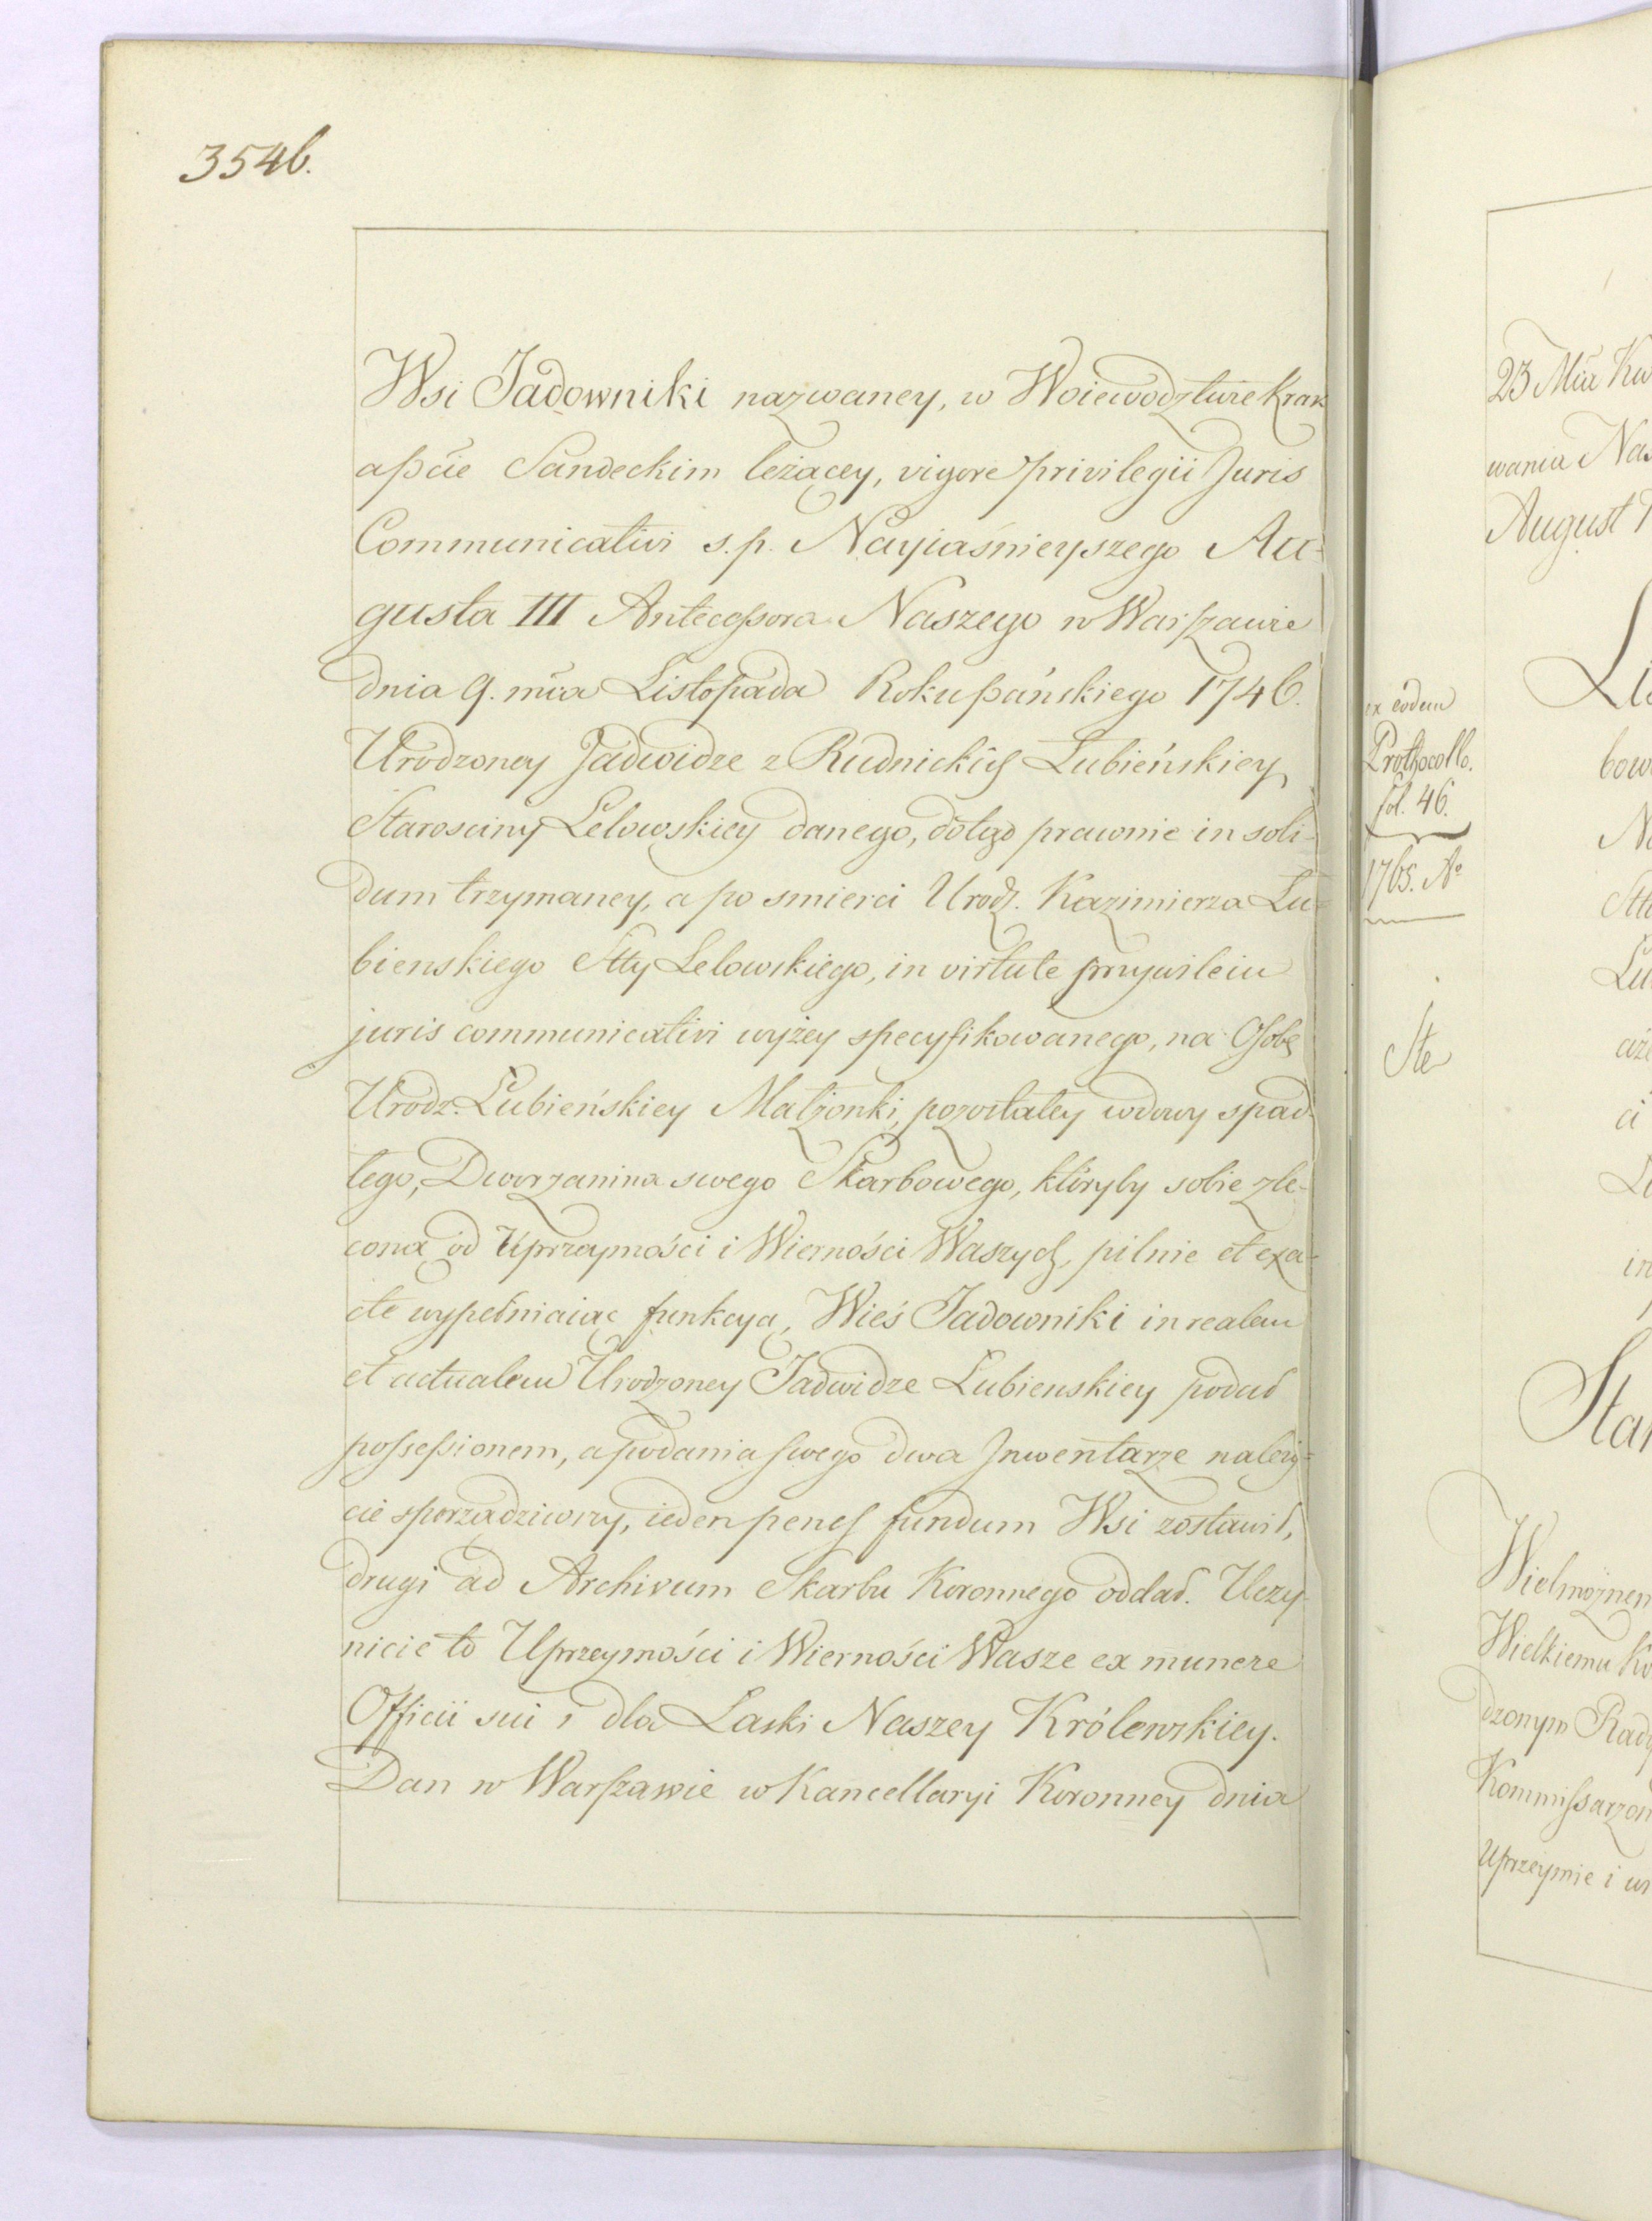 354b.
Wsi Jadowniki nazwaney, w Woiewodztwie Krak
a pcie Sandeckim leżącey, vigore privilegii Juris
Communicativi s. p. Nayiaśnieyszego Au-
gusta III Antecessora Naszego w Warszawie
dnia 9. mca Listopada Roku pańskiego 1746.
Urodzoney Jadwidze z Rudnickich Łubieńskiey
Starosciny Lelowskiey danego, dotąd prawnie in soli-
dum trzymaney, a po smierci Urodz. Kazimierza Łu-
bienskiego Stty Lelowskiego, in virtute przywileiu
juris communicativi wyżey specyfikowanego, na Osobę
Urodz. Łubieńskiey Małżonki, pozostałey wdowy spad-
łego, Dworzanina swego Skarbowego, któryby sobie zle-
coną od Uprzeymości i Wierności Waszych, pilnie et exa-
cte wypełniaiąc funkcyą, Wieś Jadowniki in realem
et actualem Urodzoney Jadwidze Łubienskiey podał
possessionem, a podania swego dwa Inwentarze należy-
cie sporządziwszy, ieden penes fundum Wsi zostawił,
drugi ad Archivum Skarbu Koronnego oddał. Uczy-
nicie to Uprzeymości i Wierności Wasze ex munere
Officii sui i dla Łaski Naszey Królewskiey.
Dan w Warszawie w Kancellaryi Koronney dnia
ex eodem
Prothocollo.
fol. 46.
1765. Ao
Ste
23 Mca Kw
wania Na
August
Li
bow
Na
Stt
Łu
aże
ci
in
Sta
Wielmożnem
Wielkiemu Ko
dzonym Rad
Kommissarzom
Uprzeymie i w